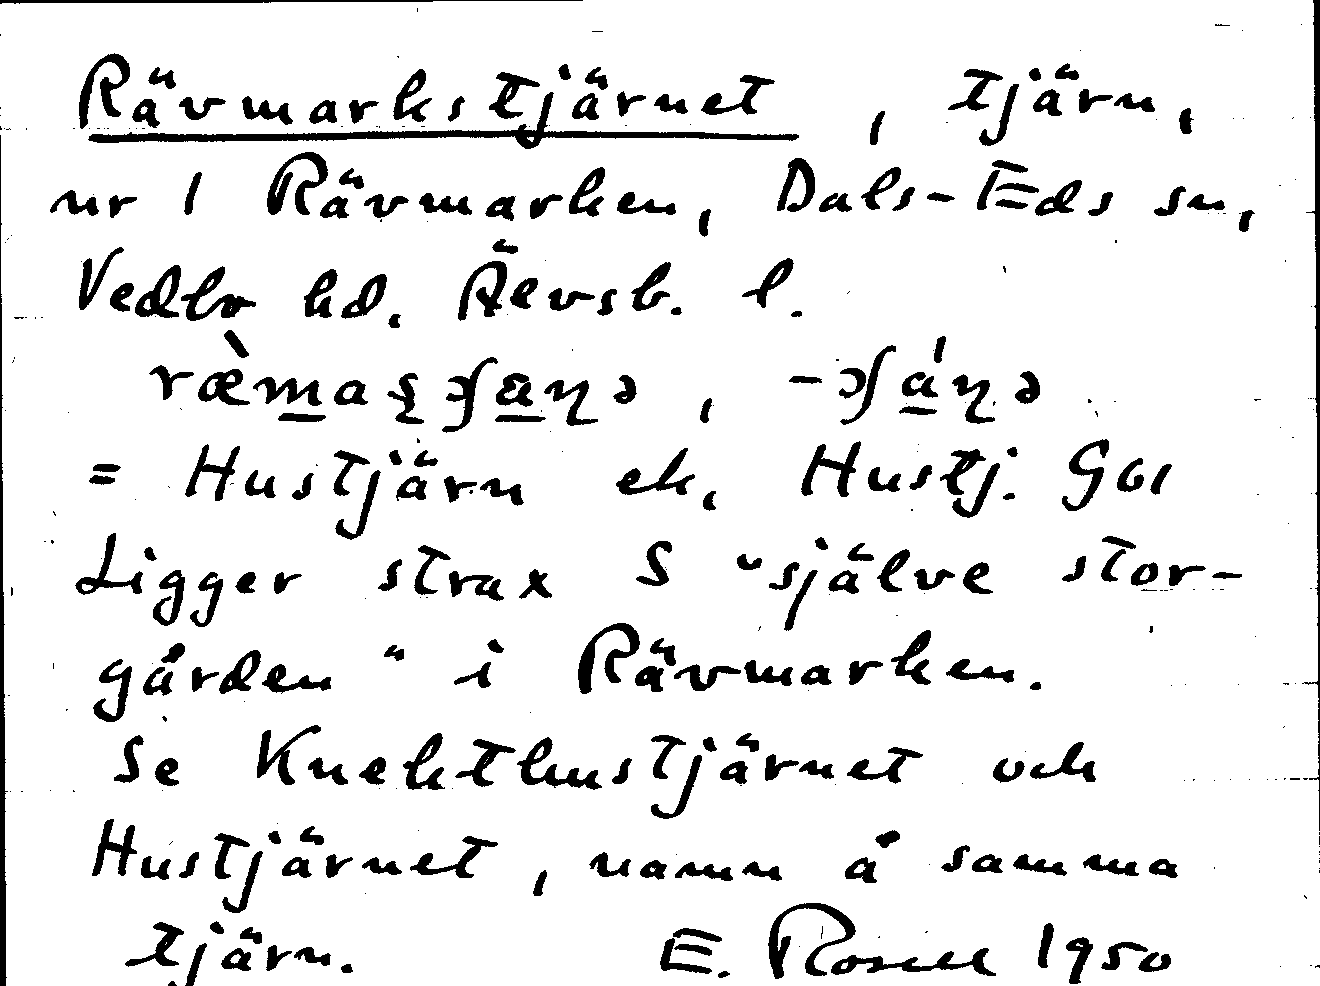 Rävmarkstjärnet, tjärn,
nr 1 Rävmarken, Dals-Eds sn,
Vedbo hd. Älvsb. l.
= Hustjärn ek. Hustj. G61
Ligger strax S "själve stor-
gården" i Rävmarken.
Se Knekthustjärnet och
Hustjärnet, namn å samma
tjärn. E. Rosell 1950